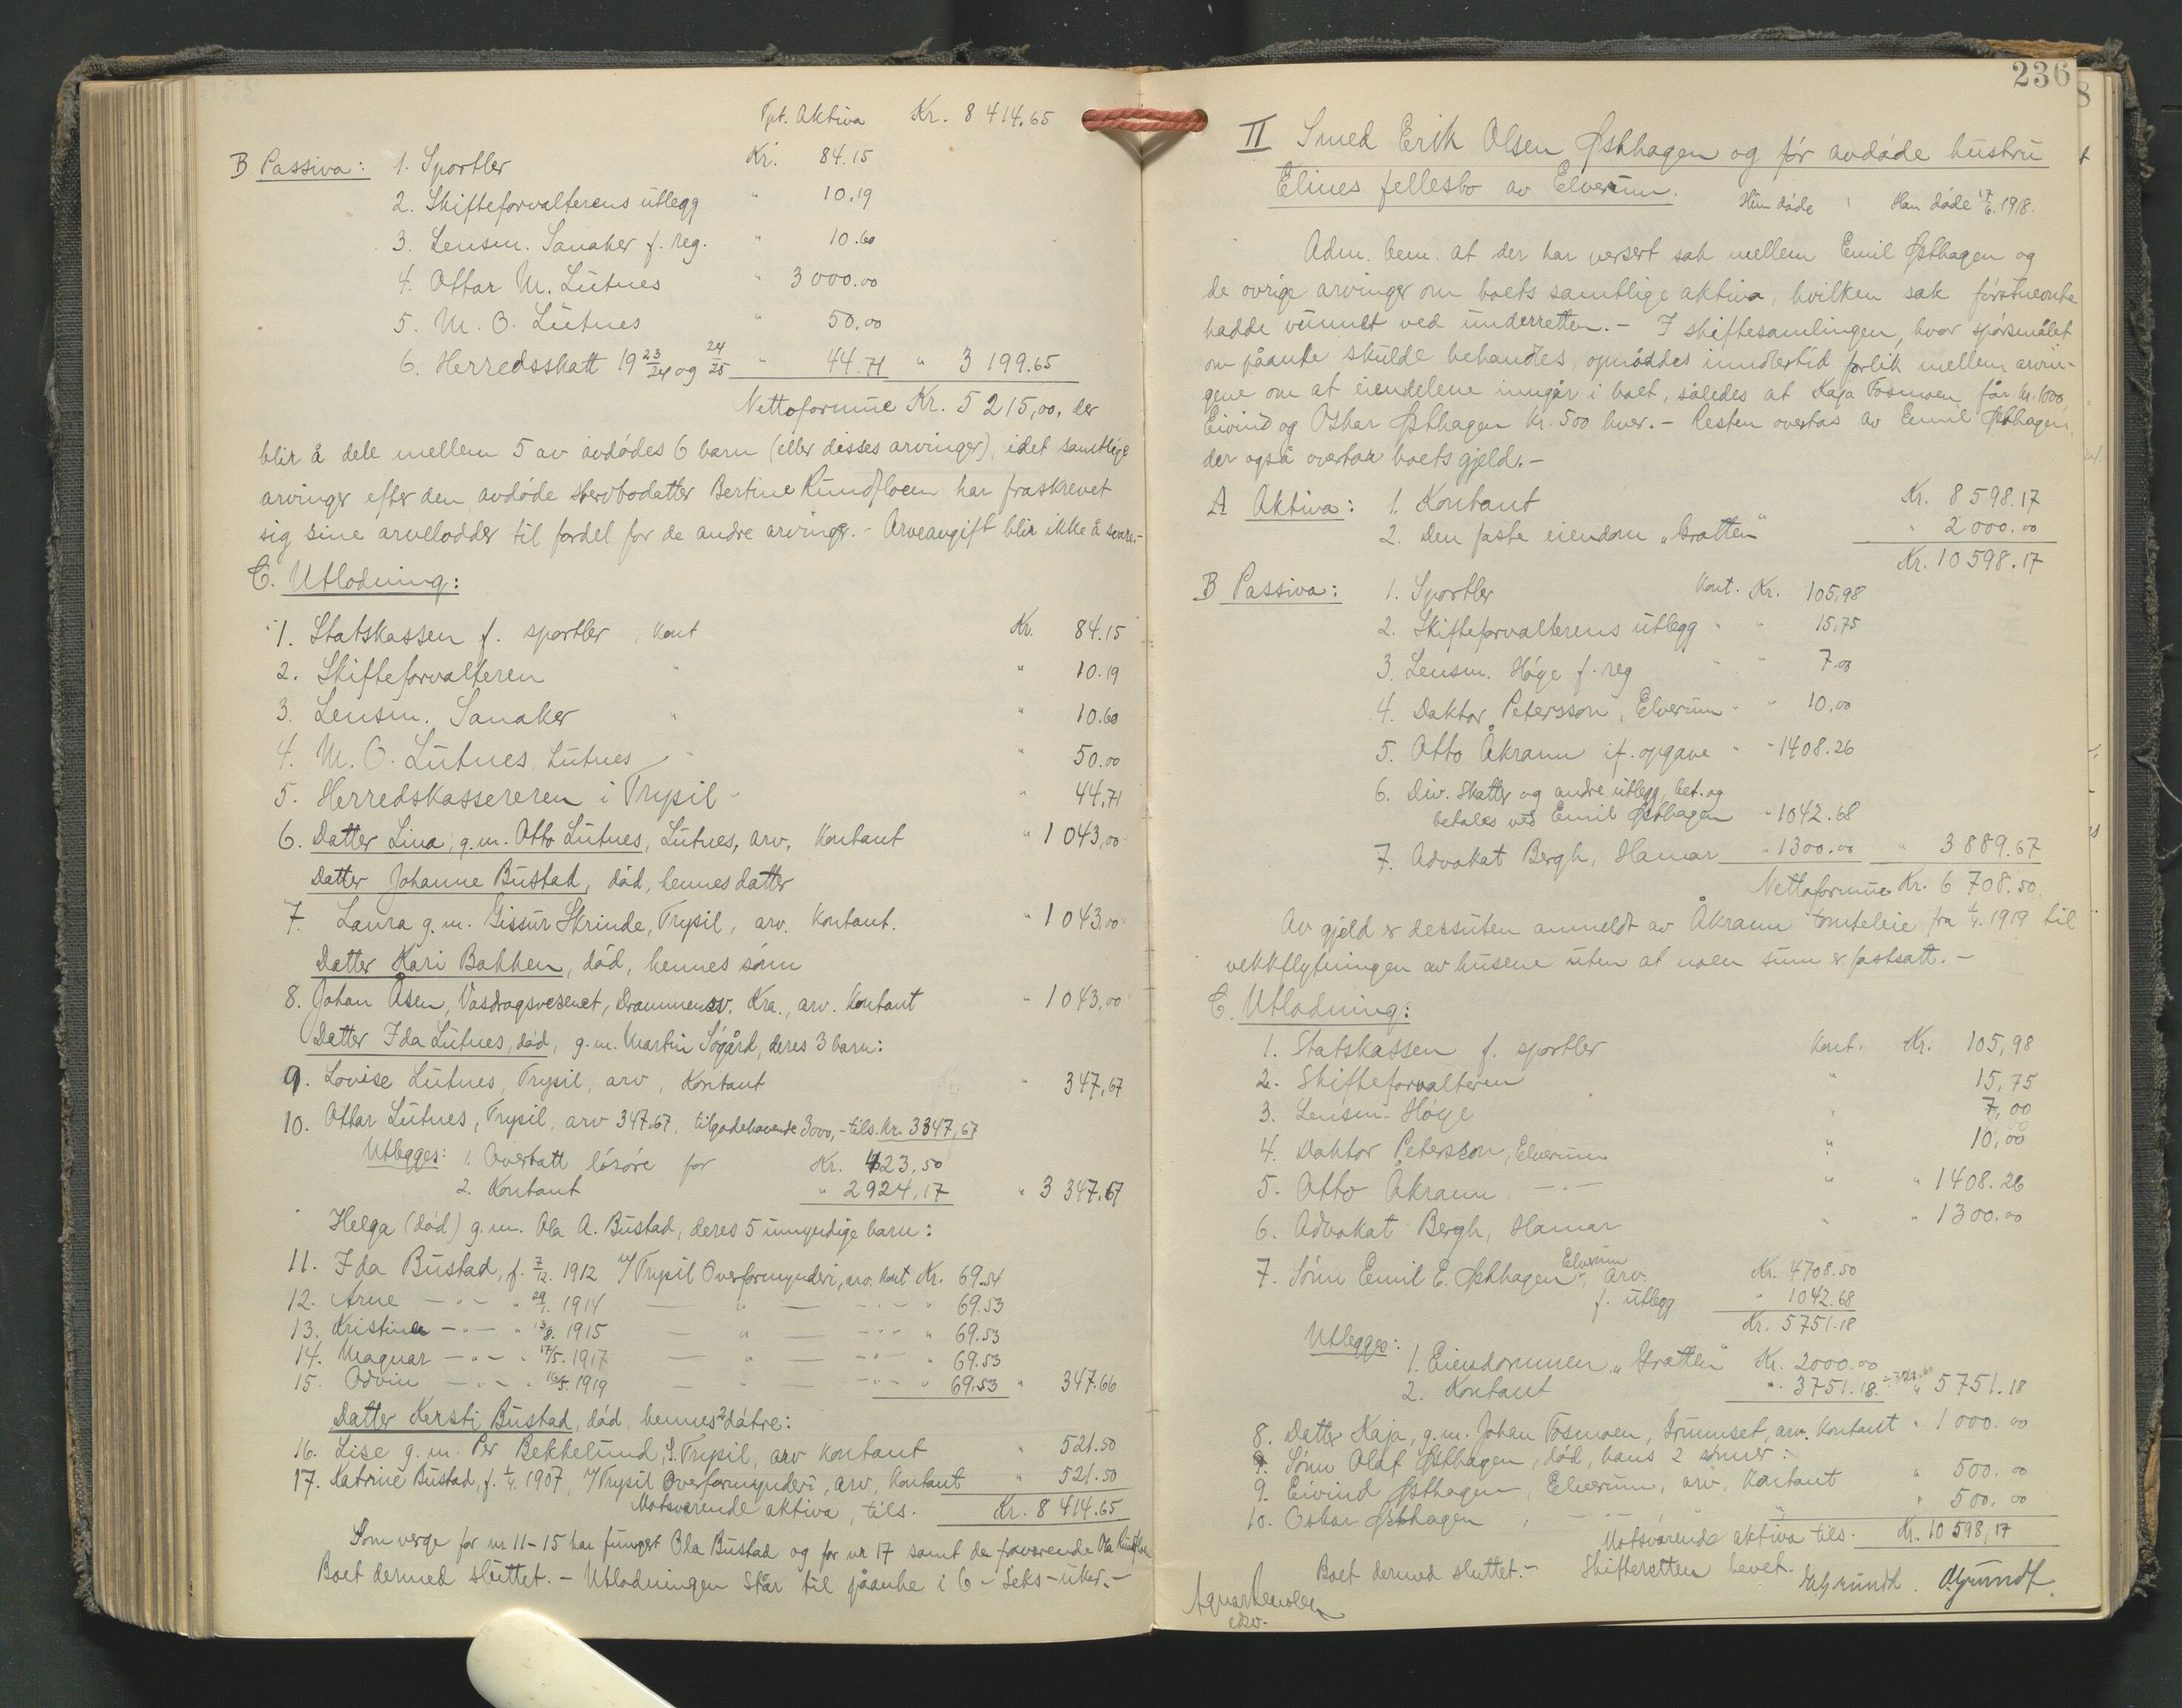 Tpt. Aktiva Kr. 8 414.65
B Passiva: 1. Sportler Kr. 84.15
2. Skifteforvalterens utlegg " 10.19
3. Lensm. Sanaker f. reg. " 10.60
4. Ottar M. Lutnes " 3 000.00
5. M. O. Lutnes " 50.00
6. Herredsskatt 19 23/24 og 24/25 " 44.71 " 3 199.65
Nettoformue Kr. 5 215,00, der
blir å dele mellem 5 av avdødes 6 barn (eller disses arvinger), idet samtlige
arvinger efter den avdøde stervbodatter Bertine Rundfloen har fraskrevet
sig sine arvelodder til fordel for de andre arvinger. - Arveavgift blir ikke å svare.-
C. Utlodning:
1. Statskassen f. sportler, kont Kr. 84.15
2. Skifteforvalteren " " 10.19
3. Lensm. Sanaker " " 10.60
4. M. O. Lutnes, Lutnes " " 50.00
5. Herredskassereren i Trysil " " 44,71
6. Datter Lina, g.m. Otto Lutnes, Lutnes, arv, Kontant " 1 043,00
Datter Johanne Bustad, død, hennes datter
7. Laura g.m. Gissur Skrinde, Trysil, arv. kontant. " 1 043.00
Datter Kari Bakken, død, hennes sønn
8. Johan Åsen, Vasdragsvesenet, Drammensv. Kra., arv. Kontant " 1 043,00
Datter Ida Lutnes, død, g.m. Martin Søgård, deres 3 barn:
9. Lovise Lutnes, Trysil, arv, Kontant " 347,67
10. Ottar Lutnes, Trysil, arv 347.67, tilgodehavende 3000,- tils. Kr. 3347,67
Utlegges: 1. Overtatt løsøre for Kr. 423,50
2. Kontant " 2924,17 " 3 347.67
Helga (død) g.m. Ola A. Bustad, deres 5 umyndige barn:
11. Ida Bustad, f. 7/12. 1912 v/Trysil Overformynderi, arv. kont Kr. 69.54
12. Arne — " — " 29/1. 1914 — " — — " — " 69.53
13. Kristine — " — " 13/8. 1915 — " — — " — " 69.53
14. Magnar — " — " 17/5. 1917 — " — — " — " 69.53
15. Odvin — " — " 16/5. 1919 — " — — " — " 69.53 " 347.66
Datter Kersti Bustad, død, hennes 2 døtre:
16. Lise g.m. Per Bekkelund, S. Trysil, arv kontant " 521.50
17. Katrine Bustad, f. 1/4. 1907, v/Trysil Overformynderi, arv, kontant " 521.50
Motsvarende aktiva, tils. Kr. 8 414.65
Som verge for nr 11-15 har fungert Ola Bustad og for nr 17 samt de fraværende Ola Rundfloen
Boet dermed sluttet. - Utlodningen står til påanke i 6 - seks - uker. -
236
II Smed Erik Olsen Østhagen og før avdøde hustru
Elines fellesbo av Elverum. Hun døde Han døde 17/6. 1918.
Adm. bem. at der har versert sak mellem Emil Østhagen og
de øvrige arvinger om boets samtlige aktiva, hvilken sak førstnevnte
hadde vunnet ved underretten. - I skiftesamlingen, hvor spørsmålet
om påanke skulde behandles, opnåddes imidlertid forlik mellem arvin-
gene om at eiendelene inngår i boet, således at Kaja Tosmoen får kr. 1000,
Eivind og Oskar Østhagen kr. 500 hver. - Resten overtas av Emil Østhagen,
der også overtar boets gjeld. -
A Aktiva: 1. Kontant Kr. 8 598.17
2. Den faste eiendom „Bratten" " 2 000.00
Kr. 10 598.17
B Passiva: 1. Sportler Kont. Kr. 105,98
2. Skifteforvalterens utlegg " " 15,75
3. Lensm. Høye f. reg " " 7.00
4. Doktor Petersson, Elverum " " 10,00
5. Otto Åkrann if. opgave " " 1408.26
6. Div. skatter og andre utlegg, bet. og
betales ved Emil Østhagen " 1042.68
7. Advokat Bergh, Hamar " 1300.00 " 3 889.67
Nettoformue Kr. 6 708.50.
Av gjeld er dessuten anmeldt av Åkrann tomteleie fra 1/4. 1919 til
vekkflytningen av husene uten at noen sum er fastsatt. -
C. Utlodning:
1. Statskassen f. sportler kont. Kr. 105,98
2. Skifteforvalteren " 15,75
3. Lensm. Høye " 7,00
4. Doktor Petersson, Elverum " 10,00
5. Otto Åkrann — " — " " 1408.26
6. Advokat Bergh, Hamar " " 1300.00
7. Sønn Emil E. Østhagen, Elverum, arv. Kr. 4708.50
f. utlegg " 1042.68
Kr. 5751.18
Utlegges: 1. Eiendommen „Bratten" Kr. 2000.00
2. Kontant " 3751.18 " 5751.18
8. Datter Kaja, g.m. Johan Tosmoen, Grumset, arv. kontant " 1 000.00
Sønn Olaf Østhagen, død, hans 2 sønner:
9. Eivind Østhagen, Elverum, arv, Kontant " 500.00
10. Oskar Østhagen, " " 500.00
Motsvarende aktiva tils. Kr. 10 598,17
Boet dermed sluttet. - Skifteretten hevet.